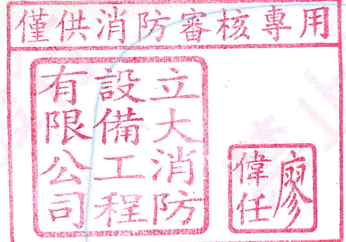 僅供消防審核專用
立大消防
設備工程
有限公司
廖偉任